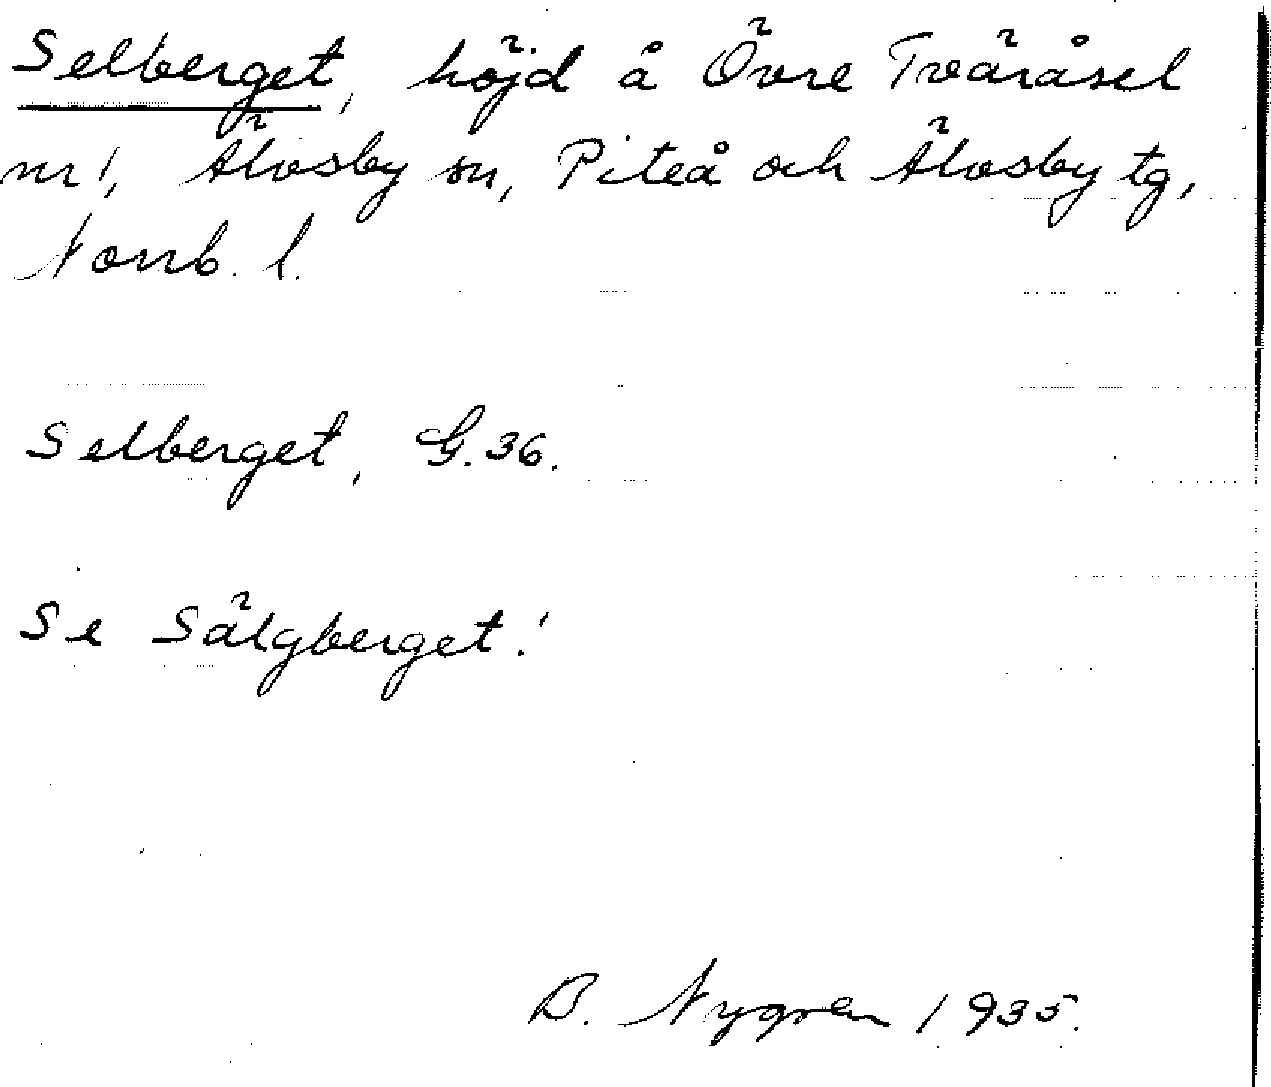 Selberget, höjd å Övre Tväråsel
nr 1, Älvsby sn, Piteå och Älvsby tg,
Norrb. l.
Selberget, G.36.
Se Sälgberget!
B. Nygren 1935.